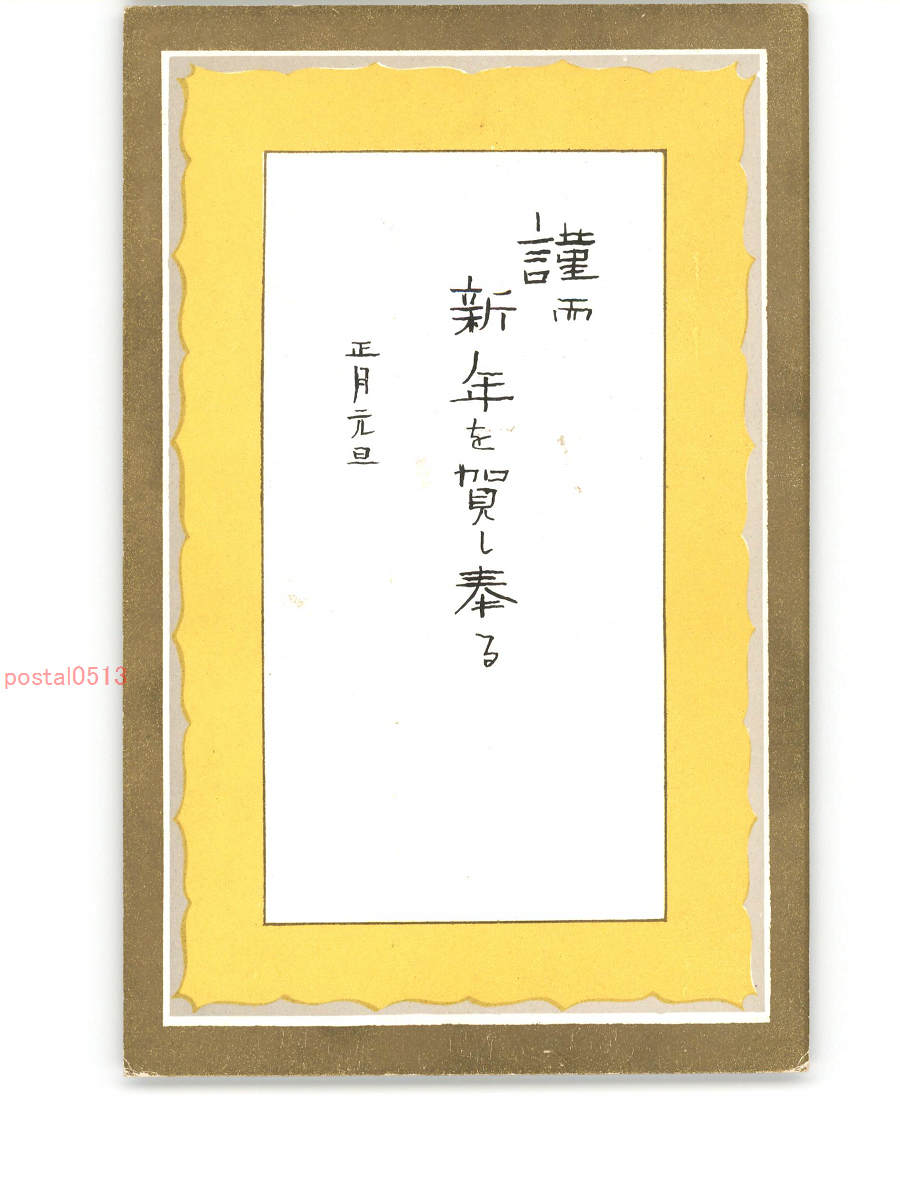 謹而
新年を賀し奉る
正月元旦
postal0513